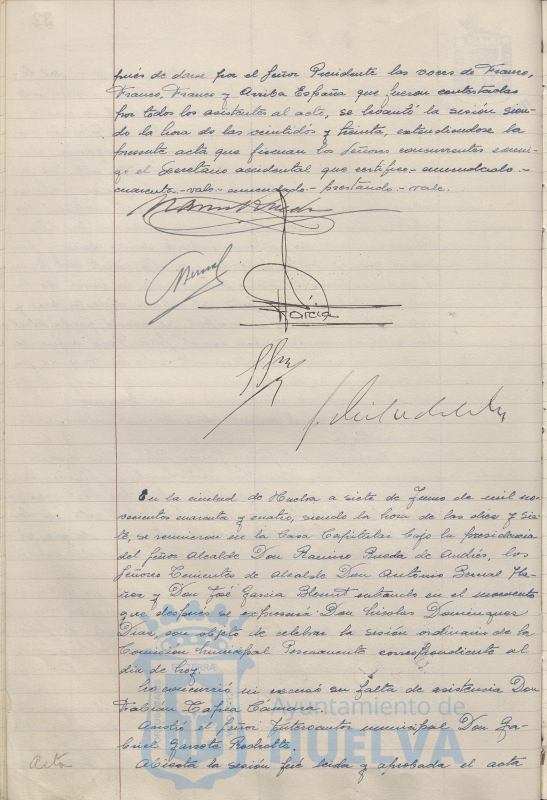 pués de darse por el Señor Presidente las voces de Franco,
Franco, Franco y Arriba España que fueron contestadas
por todos los asistentes al acto, se levantó la sesión sien-
do la hora de las veintidos y treinta, extendiendose la
presente acta que firman los señores concurrentes conmi-
go el Secretario accidental que certifico.- enmendado.-
cuarenta.- vale.- enmendado.- prestando.- vale.
Bernal
García
En la ciudad de Huelva a siete de Junio de mil no-
vecientos cuarenta y cuatro, siendo la hora de las diez y sie-
te, se reunieron en la Casa Capitular bajo la presidencia
del Señor Alcalde Don Ramiro Rueda de Andrés, los
Señores Tenientes de Alcalde Don Antonio Bernal
y Don José García entrando en el momento
que después se expresará Don Nicolas Dominguez
Diaz, con objeto de celebrar la sesión ordinaria de la
Comision Municipal Permanente correspondiente al
dia de hoy.
No concurrió ni excusó su falta de asistencia Don
Fabian Tapia Camara.
Asistió el Señor Interventor municipal Don Ga-
briel Garrote Rodrolte.
Acta
Abierta la sesión fué leida y aprobada el acta
Ayuntamiento de
HUELVA